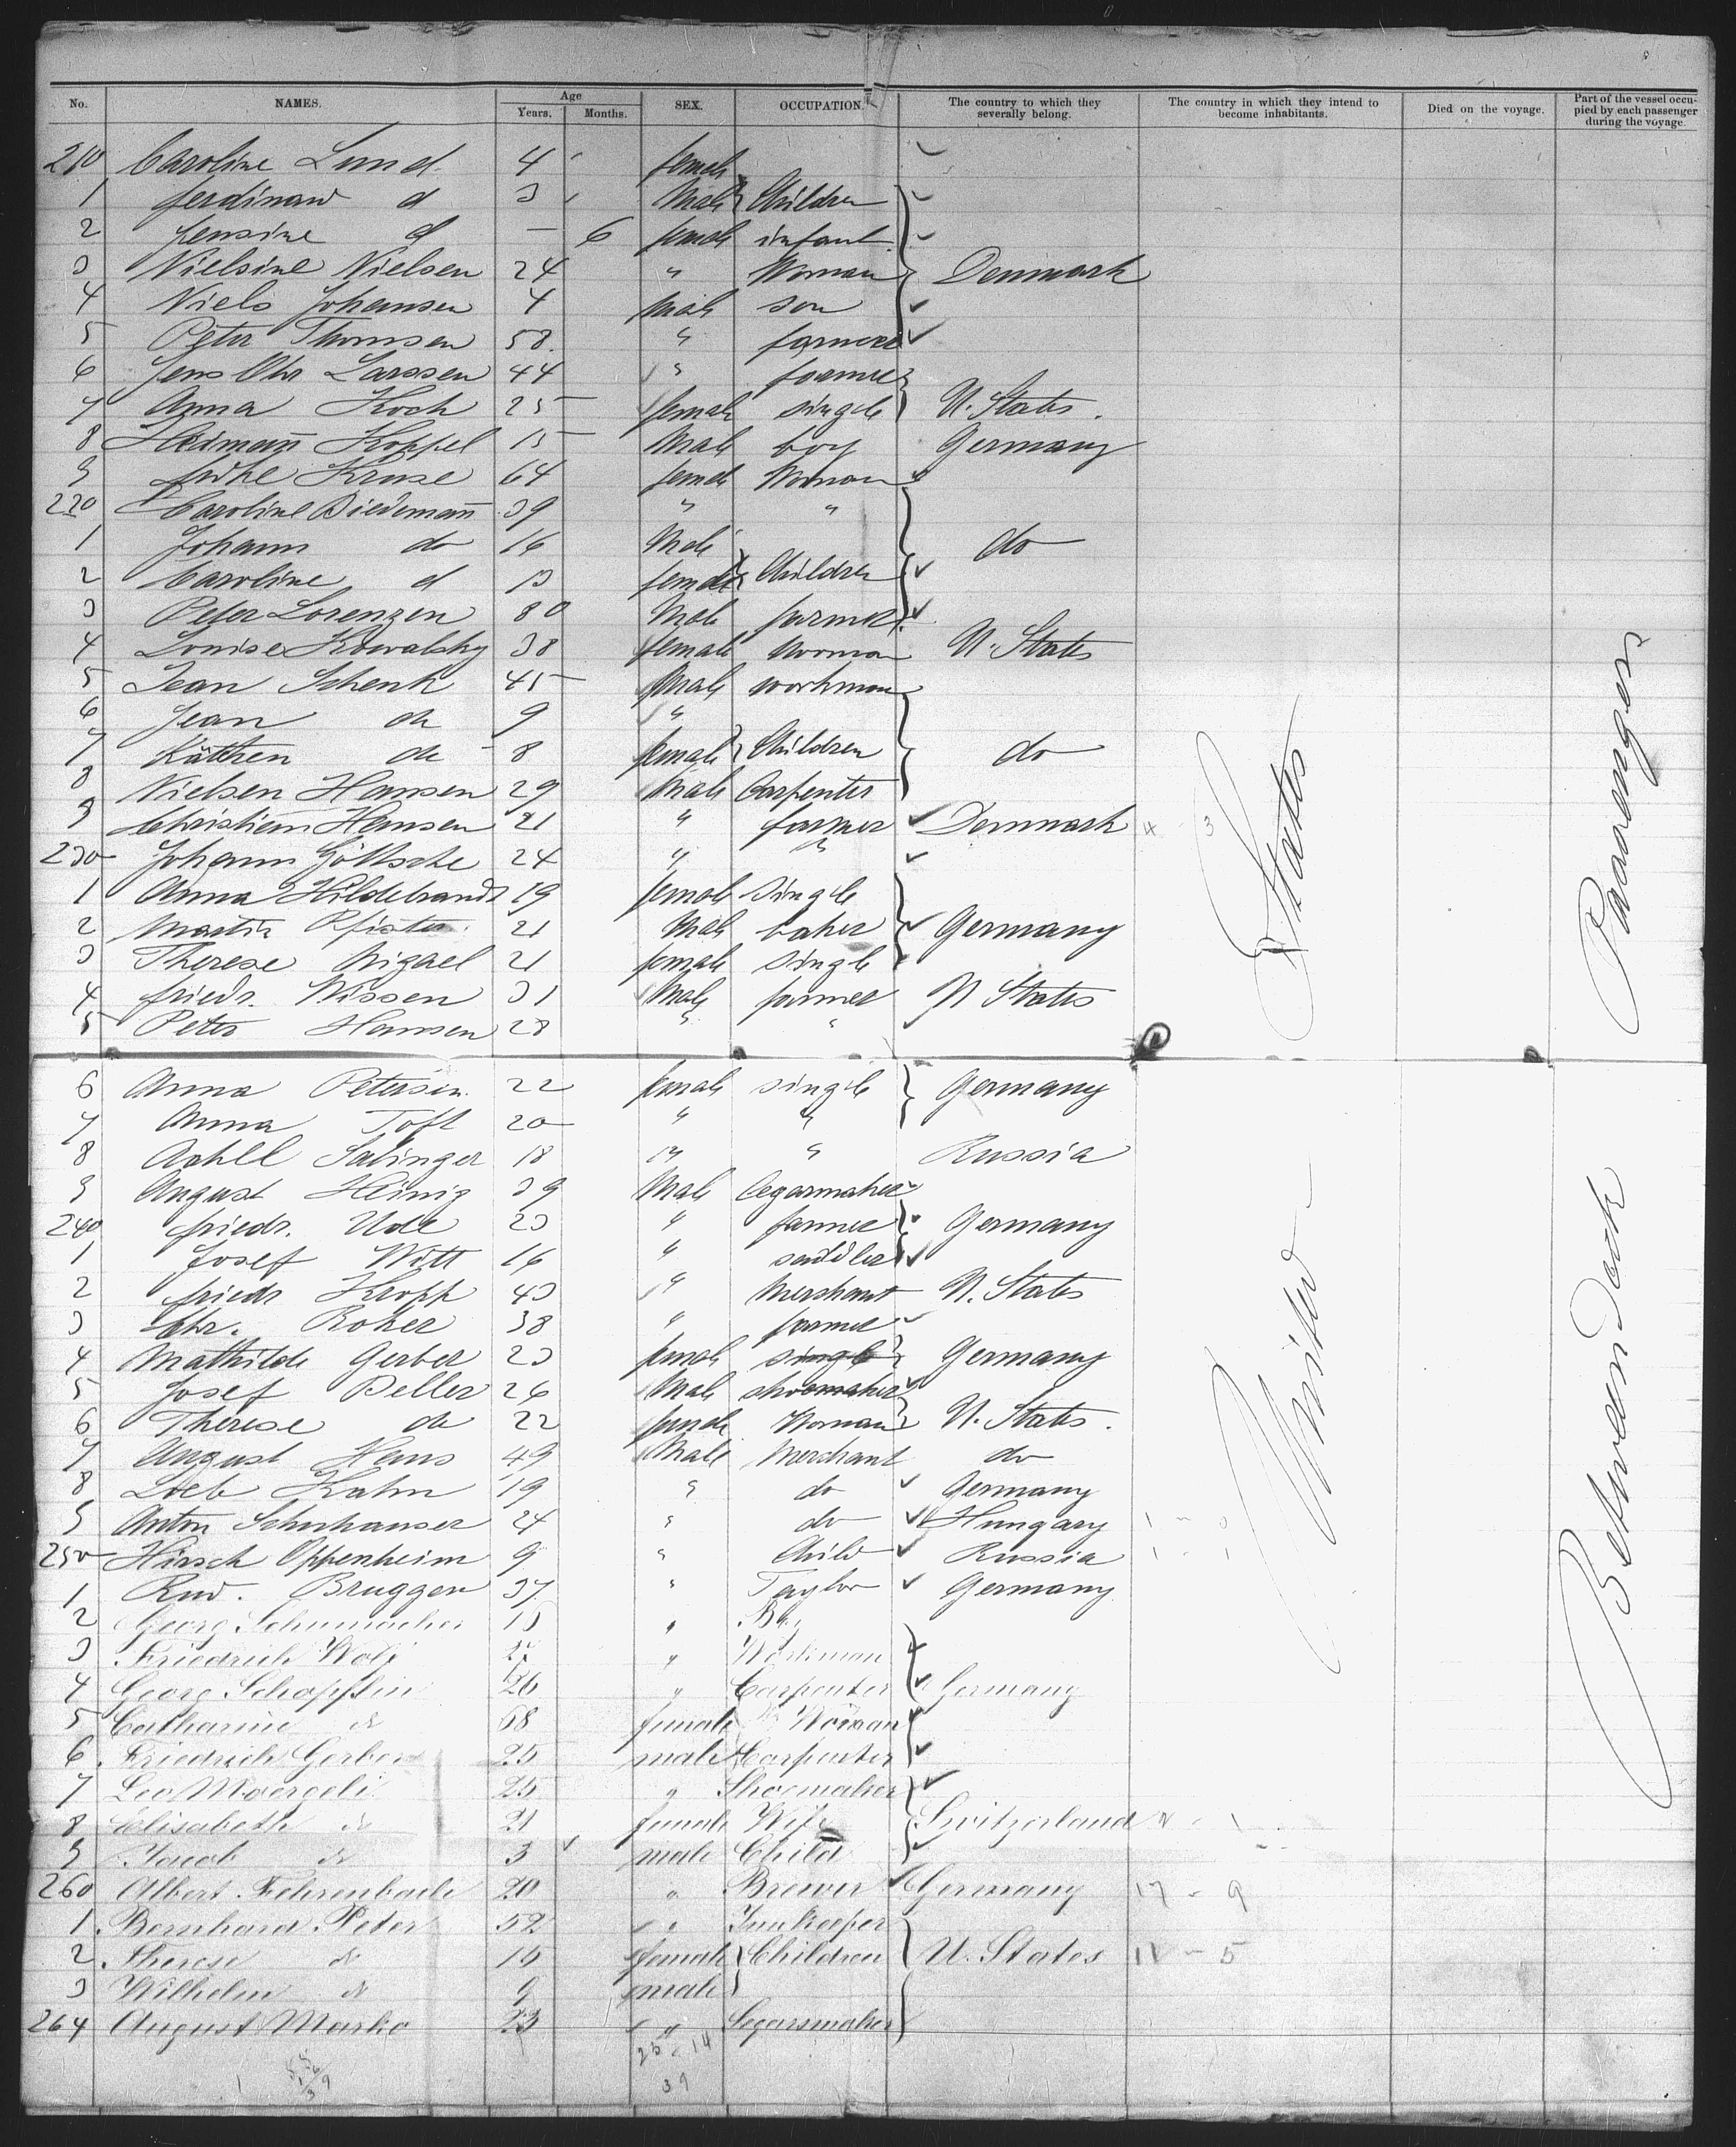 No. NAMES. Age Years. Months. SEX. OCCUPATION. The country to which they severally belong. The country in which they intend to become inhabitants. Died on the voyage. Part of the vessel occupied by each passenger during the voyage.
210 Caroline Lund 4 female
1 Ferdinand d 3 Male Children
2 Jensine d — 6 female infant
3 Nielsine Nielsen 24 " Woman Denmark
4 Niels Johansen 4 Male son
5 Peter Thomsen 58 " farmer
6 Jens Chr Larssen 44 " farmer
7 Anna Koch 25 female single U. States.
8 Koppel 15 Male boy Germany
9 Kruse 64 female Woman
220 Caroline Biedemann 39 " "
1 Johann do 16 Male do
2 Caroline d 13 female Children
3 Peter Lorenzen 80 Male farmer
4 Louise Kowalsky 38 female woman U. States
5 Jean Schenk 45 Male workman
6 Jean do 9 "
7 Käthen do 8 female Children do
8 Nielsen Hansen 29 Male Carpenter
9 Christian Hansen 21 " farmer Denmark 4 - 3
230 Johann Göttsche 24 " "
1 Anna Hildebrandt 19 female single
2 Martin Pfister 21 Male baker Germany
3 Therese 21 female single
4 Friedr. Nissen 31 Male farmer U States
5 Peter Hansen 28 " "
6 Anna Petersen 22 female single Germany
7 Anna Toft 20 " "
8 Salinger 18 " " Russia
9 August Heinig 39 Male Cegarmaker
240 Friedr. Ude 23 " farmer Germany
1 Josef Witt 16 " saddler
2 Friedr Kropp 43 " Merchant U. States
3 Chr. Roker 38 " farmer
4 Mathilde Gerber 23 female single Germany
5 Josef Beller 26 Male shoemaker
6 Therese do 22 female Woman U. States.
7 August Hans 49 Male Merchant do
8 Loeb Kahn 19 " do Germany
9 Anton 24 " do Hungary 1 - 0
250 Hirsch Oppenheim 9 " Child Russia 1 - 1
1 Rud. Brugger 37 " Taylor Germany
2 Georg Schumacher 15 " Boy
3 Friedrich Wolf " Workman
4 Georg Schopflin 26 " Carpenter Germany
5 Catharine do 68 female Woman
6 Friedrich Gerber 25 male Carpenter
7 Leo Maergeli 25 " Shoemaker
8 Elisabeth do 21 female Wife Switzerland
9 Jacob do 3 male Child
260 Albert Fehrenbach 20 " Brewer Germany 17 - 9
1 Bernhard Peter 52 " Innkeeper
2 Therese do female Children U. States 11 - 5
3 Wilhelm do 9 male
264 August Marko 23 " Segarsmaker
25 - 14
39
United States
Between Deck Passengers